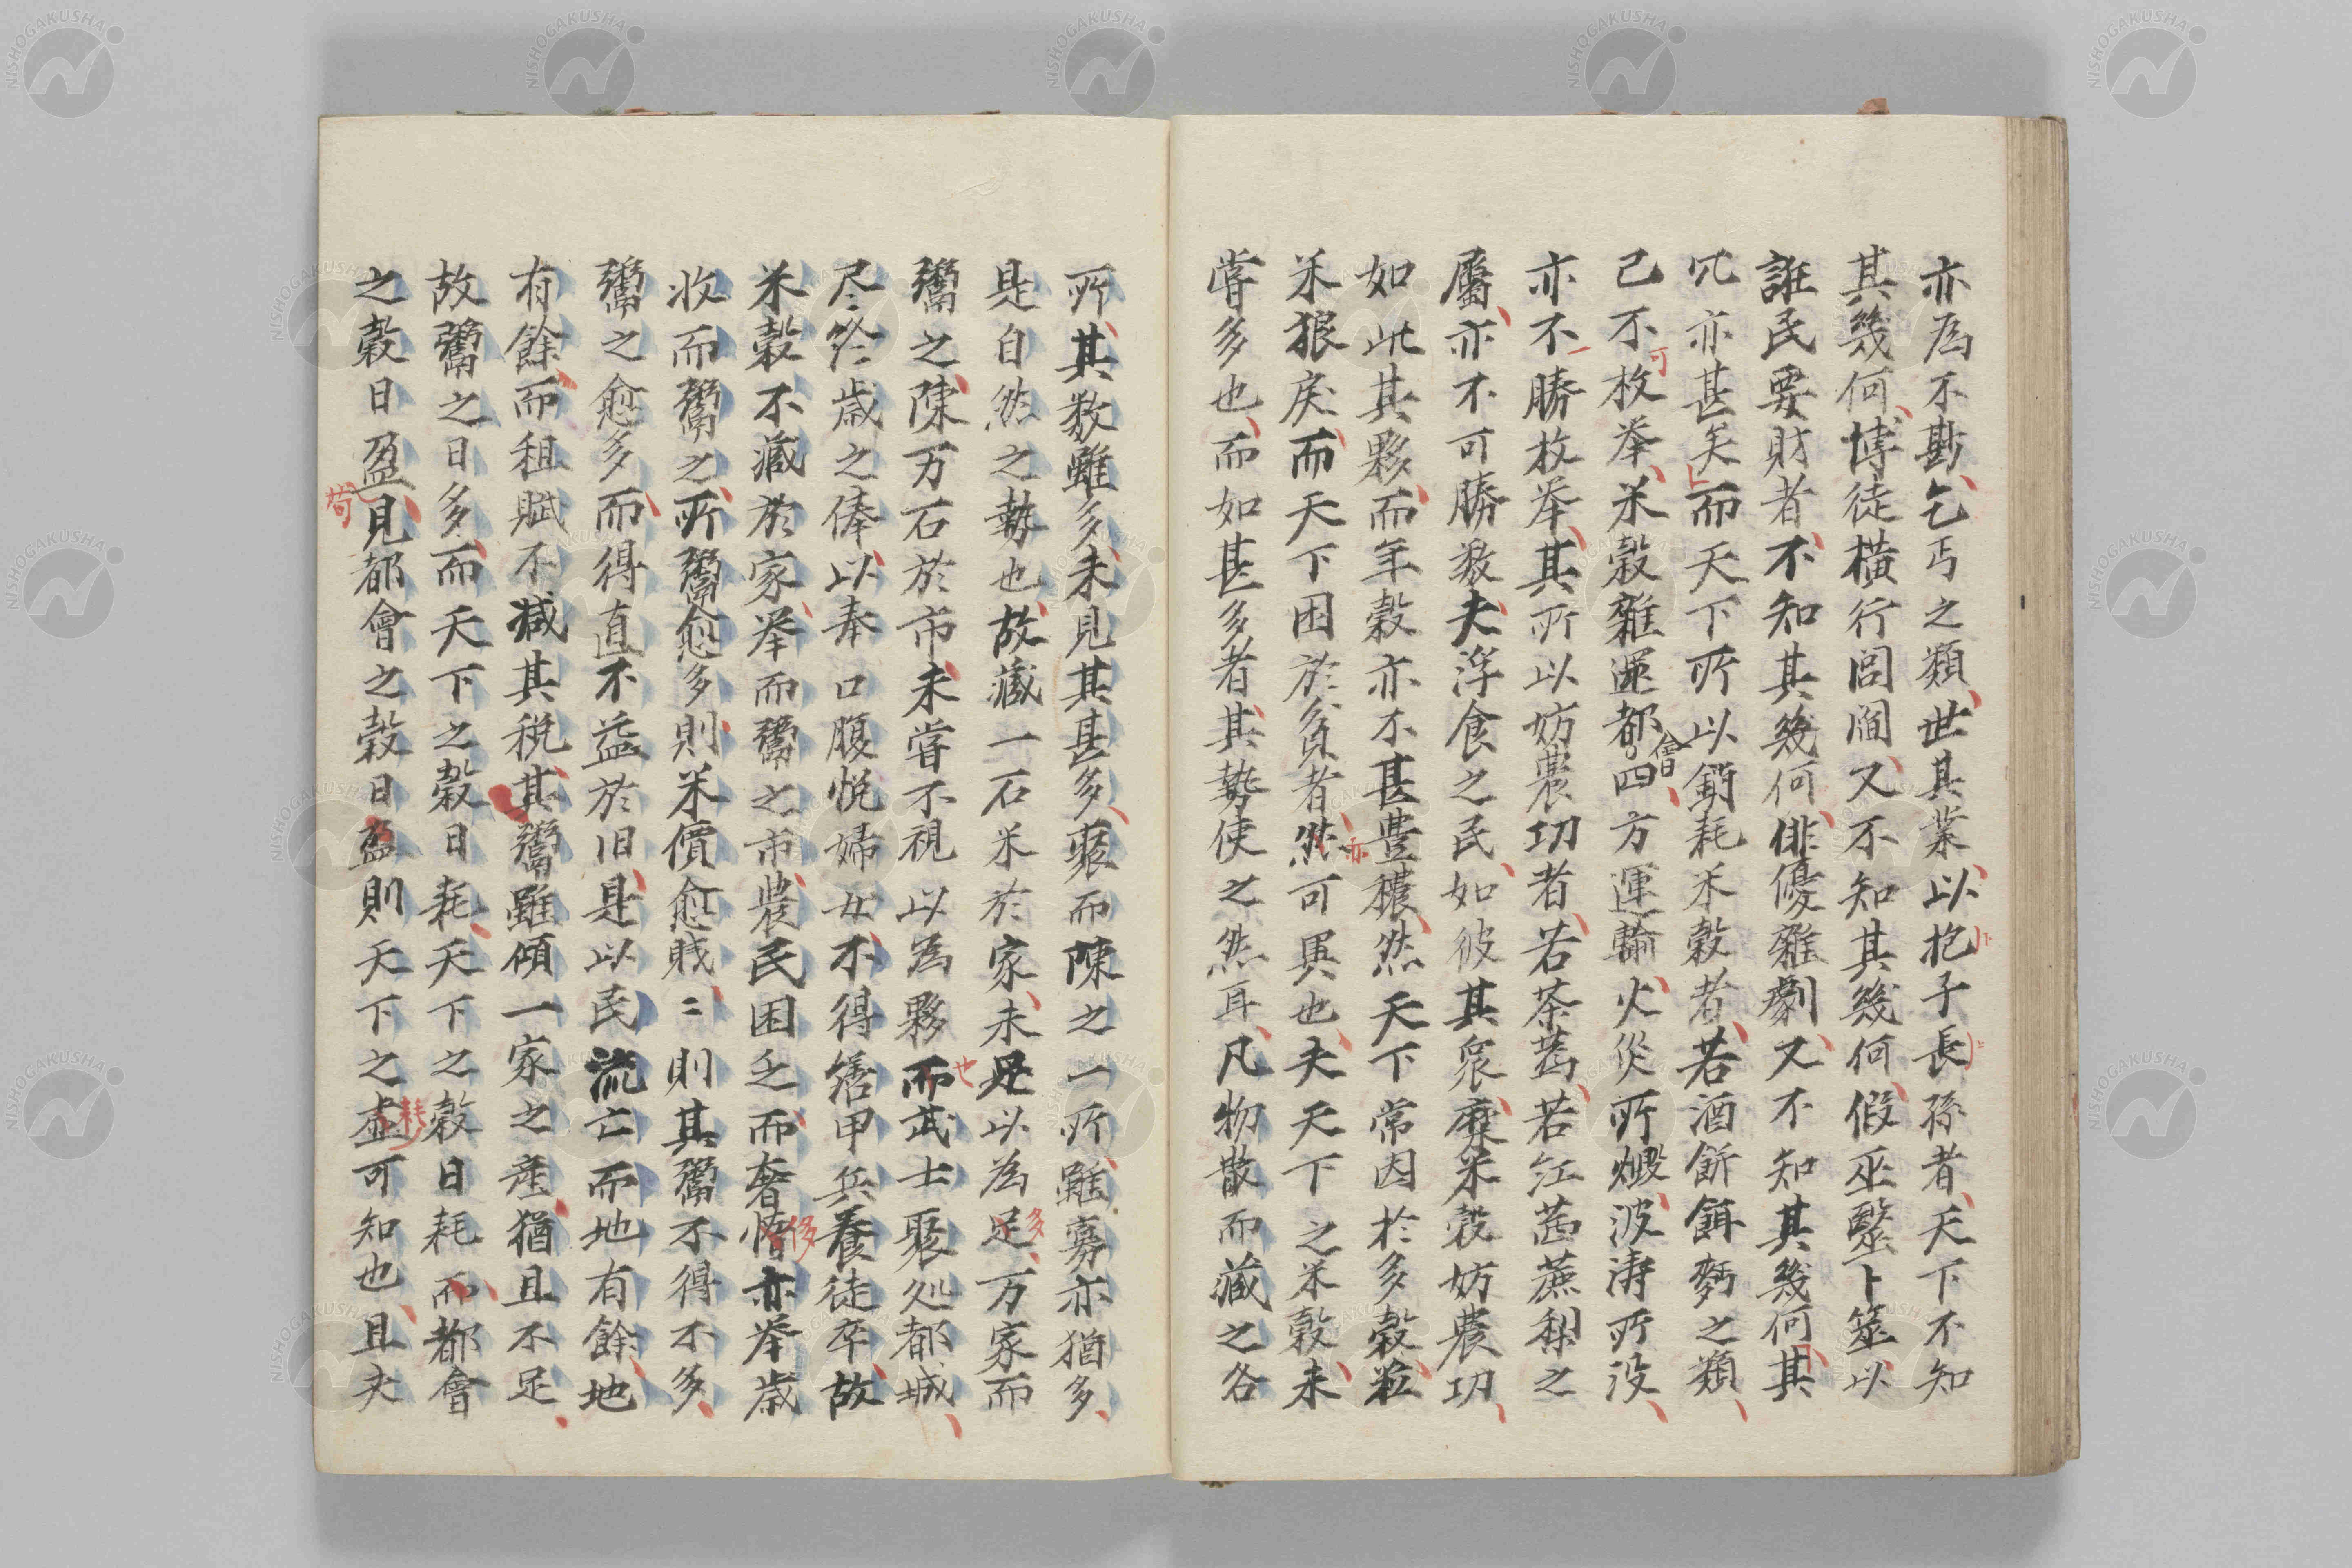 亦為不尠乞丐之類世其業以抱子長孫者天下不知
其幾何博徒横行閭閻又不知其幾何假巫毉卜筮以
誑民要財者不知其幾何俳優雜劇又不知其幾何其
冗亦甚矣而天下所以銷耗米穀者若酒餅餌麪之類
已不可枚举米穀雜運都會四方運輸火災所燬波濤所没
亦不勝枚举其所以妨農功者若茶蔫若紅茜蔗梨之
屬亦不可勝数夫浮食之民如彼其衆糜米穀妨農功
如此其夥而年穀亦不甚豊穰然天下常因於多穀粒
米狼戾而天下困於貧者然亦可異也夫天下之米穀未
嘗多也而如甚多者其勢使之然耳凡物散而藏之各
所其数雖多未見其甚多聚而陳之一所雖寡亦猶多
是自然之勢也故藏一石米於家未足以為足多万家而
鬻之陳万石於市未嘗不視以為夥而也武士聚処都城
尽終歳之俸以奉口腹悦婦女不得繕甲兵養徒卒故
米穀不藏於家举而鬻之市農民困乏而奢惰侈亦举歳
收而鬻之所鬻愈多則米價愈賎〻則其鬻不得不多
鬻之愈多而得直不益於旧是以民流亡而地有餘地
有餘而租賦不減其税其鬻雖傾一家之産猶且不足
故鬻之日多而天下之穀日耗天下之穀日耗而都會
之穀日盈見苟都會之穀日盈則天下之虚耗可知也且夫
NISHOGAKUSHA